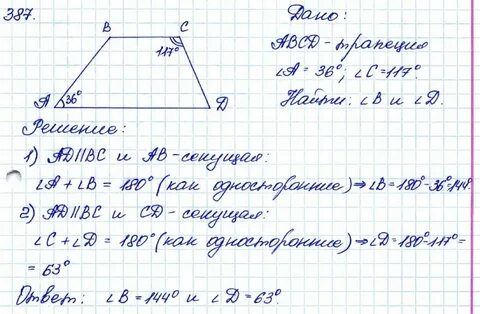 387.
B C
117°
A 36° D
Дано:
ABCD-трапеция
∠A = 36°; ∠C = 117°.
Найти: ∠B и ∠D.
Решение:
1) AD||BC и AB-секущая:
∠A + ∠B = 180° (как односторонние) ⇒ ∠B = 180°-36°=144°.
2) AD||BC и CD-секущая:
∠C + ∠D = 180° (как односторонние) ⇒ ∠D = 180°-117° =
= 63°
Ответ: ∠B = 144° и ∠D = 63°.